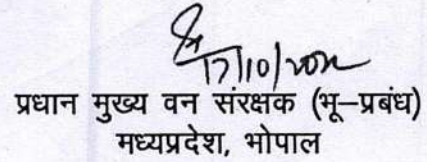 17/10/
प्रधान मुख्य वन संरक्षक (भू–प्रबंध)
मध्यप्रदेश, भोपाल